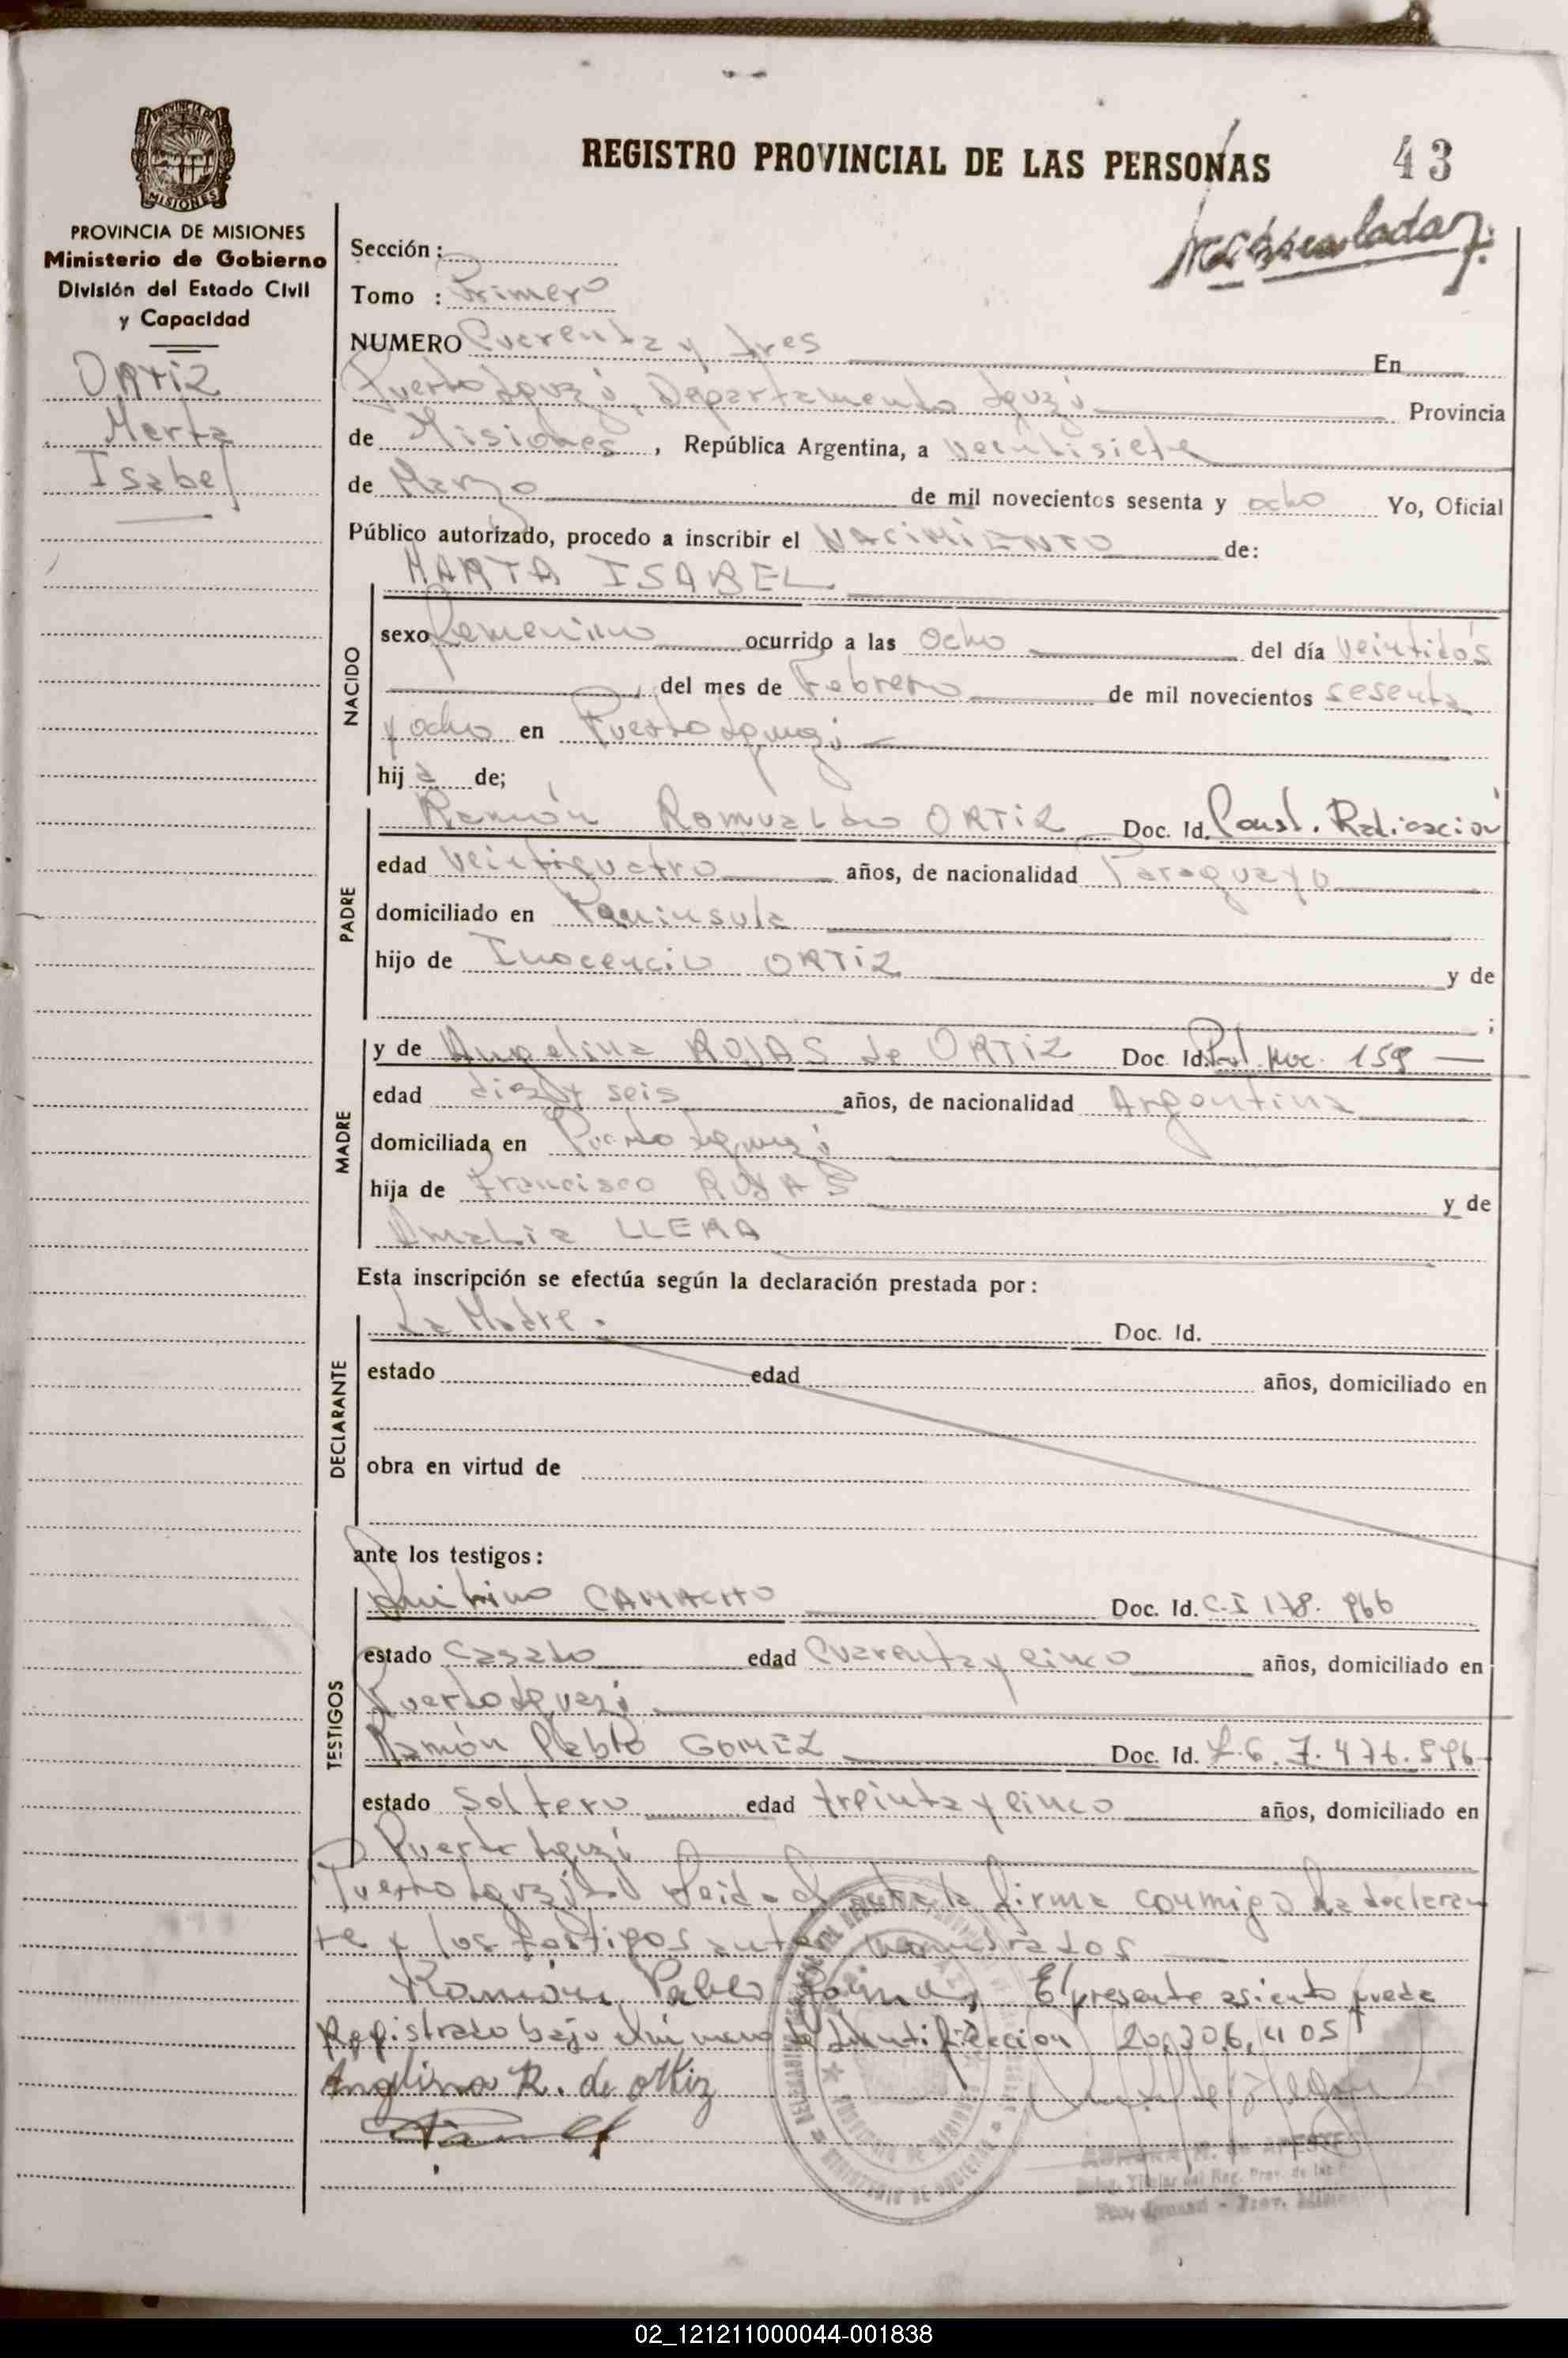 REGISTRO PROVINCIAL DE LAS PERSONAS
43
PROVINCIA DE MISIONES
Ministerio de Gobierno
División del Estado Civil
y Capacidad
Ortiz
Marta
Isabel
Sección :
Tomo : Primero
NUMERO Cuarenta y tres En
Puerto Iguazú, Departamento Iguazú Provincia
de Misiones, República Argentina, a veintisiete
de Marzo de mil novecientos sesenta y ocho Yo, Oficial
Público autorizado, procedo a inscribir el NACIMIENTO de:
MARTA ISABEL
NACIDO
sexo femenino ocurrido a las ocho del día veintidós
del mes de Febrero de mil novecientos sesenta
y ocho en Puerto Iguazú
hij a de;
PADRE
Ramón Romualdo ORTIZ Doc. Id. Const. Radicación
edad veinticuatro años, de nacionalidad Paraguayo
domiciliado en Peninsula
hijo de Inocencio ORTIZ y de
;
MADRE
y de Angelina ROJAS de ORTIZ Doc. Id. 159
edad diez y seis años, de nacionalidad Argentina
domiciliada en Puerto Iguazú
hija de Francisco ROJAS y de
Amalia LLERA
Esta inscripción se efectúa según la declaración prestada por :
DECLARANTE
La Madre . Doc. Id.
estado edad años, domiciliado en
obra en virtud de
ante los testigos :
TESTIGOS
Quirino CAMACHO Doc. Id. C.I 178. 966
estado Casado edad Cuarenta y cinco años, domiciliado en
Puerto Iguazú
Ramón Pablo GOMEZ Doc. Id. 7.476.596
estado Soltero edad treinta y cinco años, domiciliado en
Puerto Iguazú
Puerto Iguazú Leida el acta la firma conmigo la declaran
te y los testigos
Ramón Pablo Gómez El presente asiento queda
Registrado bajo el número de Identificacion 20,306,405
Anglina R. de ortiz
02_121211000044-001838